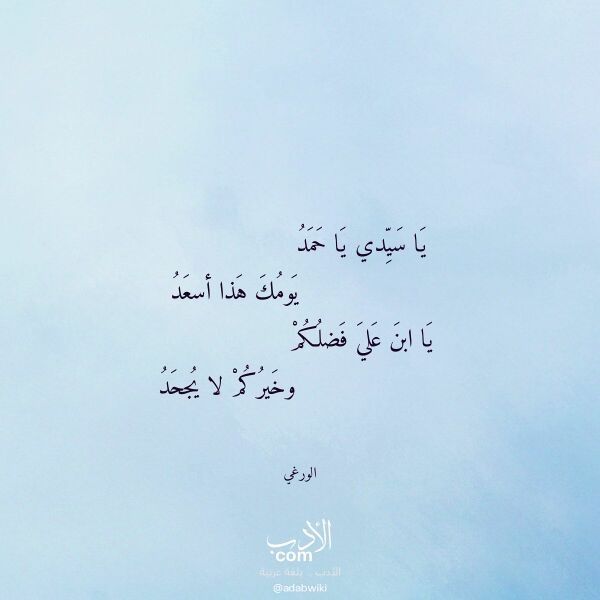 يَا سَيِّدي يَا حَمَدُ
يَومُكَ هَذا أسعَدُ
يَا ابنَ عَليَ فَضلُكُمْ
وخَيرُكُمْ لا يُجحَدُ
الورغي
الأدب
com
الأدب .. بلغة عربية
@adabwiki